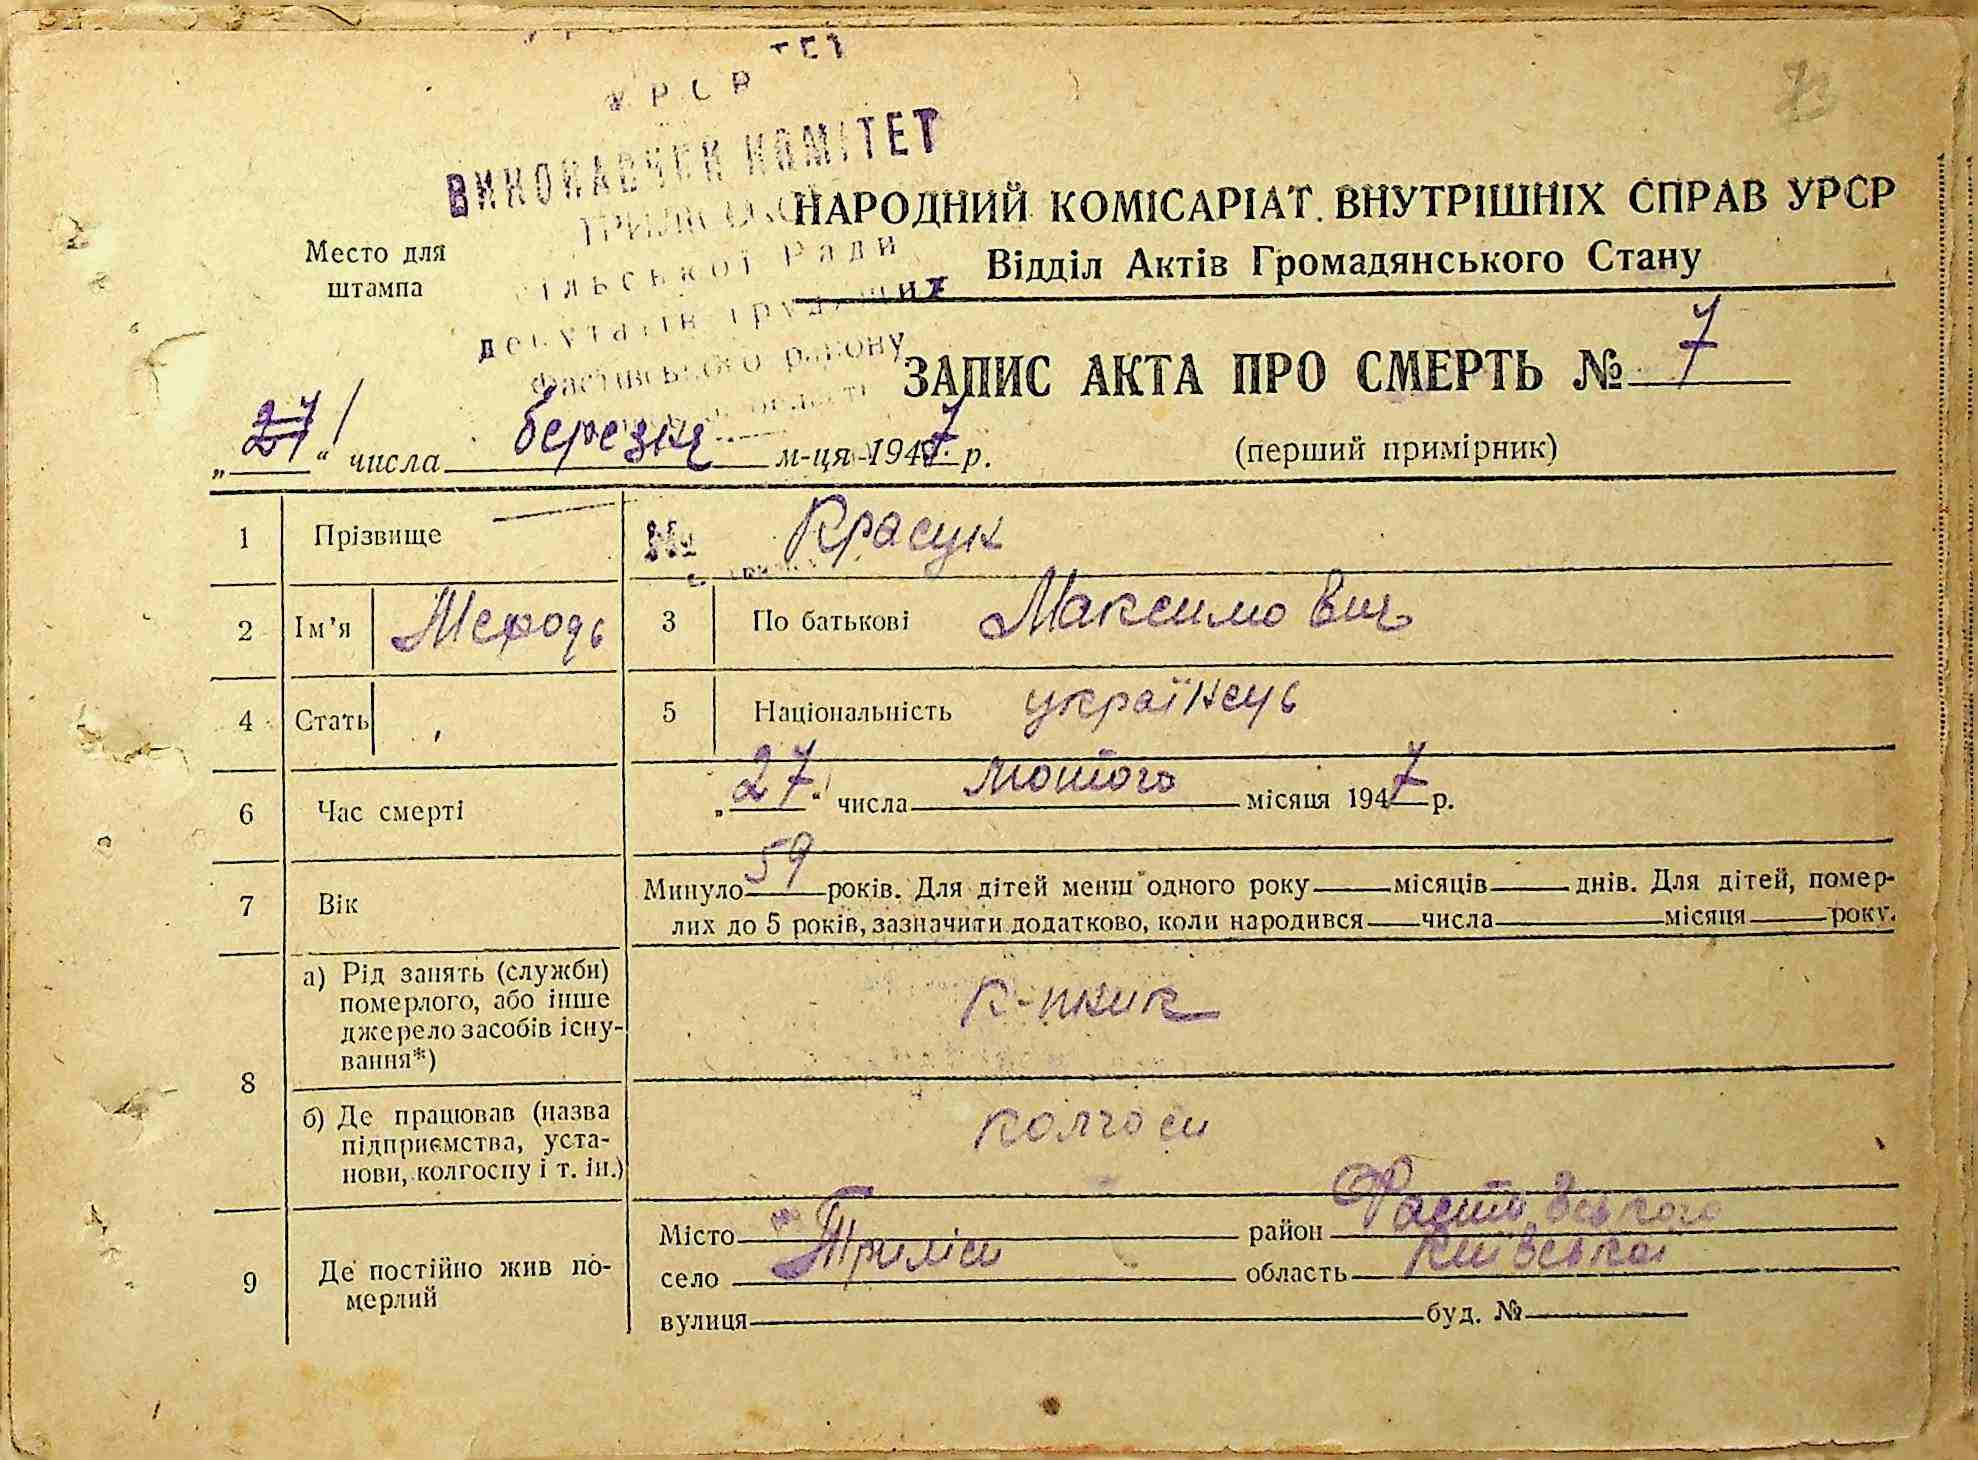 УРСР
ВИКОНАВЧИЙ КОМІТЕТ
ТРИЛІСЬКОЇ
сільської Ради
депутатів трудящих
Фастівського району
Место для
штампа
НАРОДНИЙ КОМІСАРІАТ ВНУТРІШНІХ СПРАВ УРСР
Відділ Актів Громадянського Стану
ЗАПИС АКТА ПРО СМЕРТЬ № 7
„ “ числа березня м-ця 1947 р.
(перший примірник)
1 Прізвище Красук
2 Ім’я Мефодь 3 По батькові Максимович
4 Стать 5 Національність українець
6 Час смерті „27“ числа лютого місяця 1947 р.
7 Вік Минуло 59 років. Для дітей менш одного року месяців днів. Для дітей, помер-
лих до 5 років, зазначити додатково, коли народився числа місяця року.
8 а) Рід занять (служби)
померлого, або інше
джерело засобів існу-
вання*)
к-пник
б) Де працював (назва
підприємства, уста-
нови, колгоспу і т. ін.)
колгосп
9 Де постійно жив по-
мерлий
Місто район Фастівського
село Триліси область Київської
вулиця буд. №